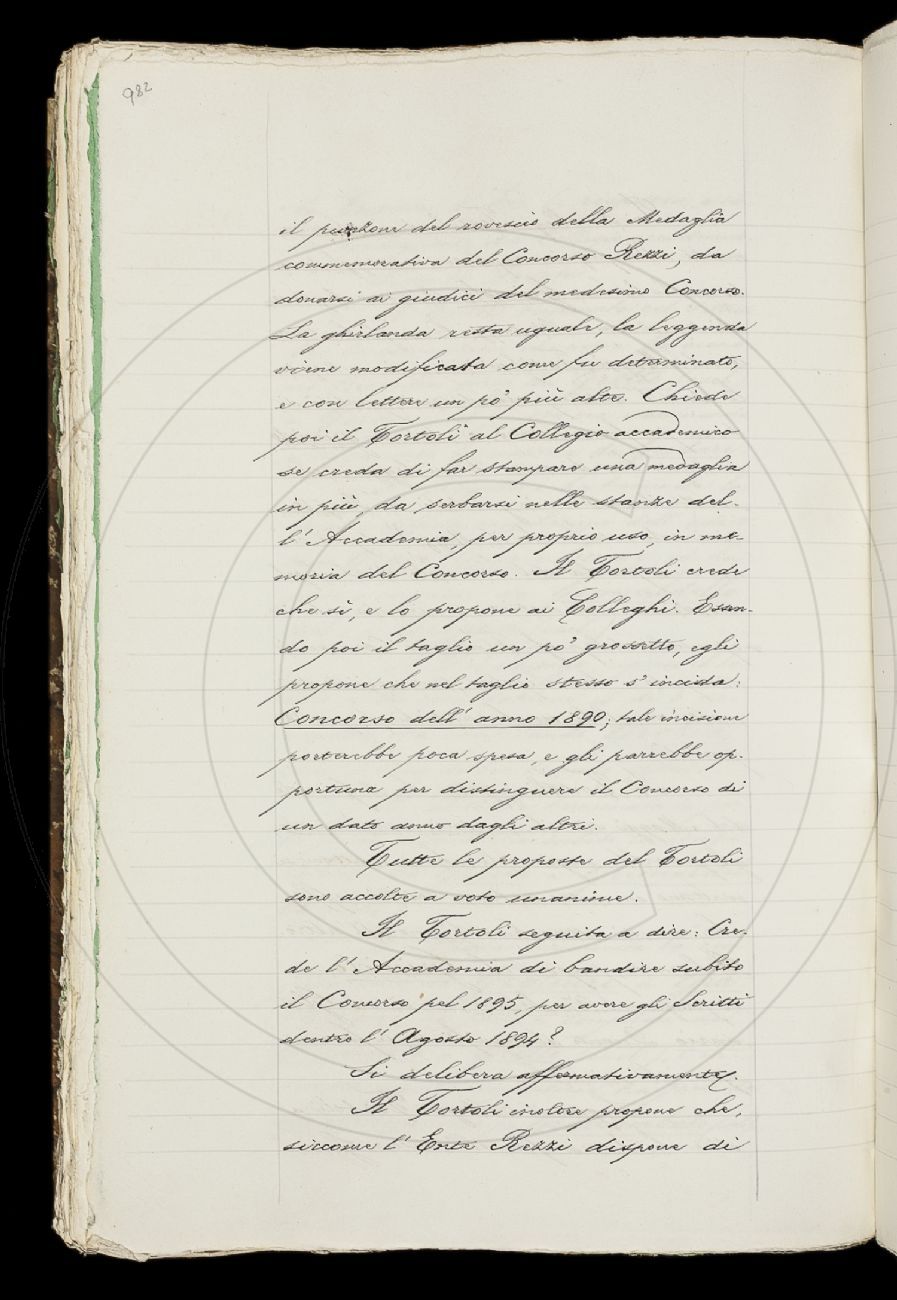 982
il punzone del rovescio della Medaglia
commemorativa del Concorso Rezzi, da
donarsi ai giudici del medesimo Concorso.
La ghirlanda resta uguale, la leggenda
viene modificata come fu determinato,
e con lettere un po' più alte. Chiede
poi il Tortoli al Collegio accademico
se creda di far stampare una medaglia
in più da serbarsi nelle stanze del-
l'Accademia, per proprio uso, in me-
moria del Concorso. Il Tortoli crede
che sì, e lo propone ai Colleghi. Essen-
do poi il taglio un po' grossetto, egli
propone che nel taglio stesso s'incida:
Concorso dell'anno 1890; tale incisione
porterebbe poca spesa, e gli parrebbe op-
portuna per distinguere il Concorso di
un dato anno dagli altri.
Tutte le proposte del Tortoli
sono accolte a voto unanime.
Il Tortoli seguita a dire: Cre-
de l'Accademia di bandire subito
il Concorso pel 1895, per avere gli Scritti
dentro l'Agosto 1894?
Si delibera affermativamente.
Il Tortoli inoltre propone che,
siccome l'Ente Rezzi dispone di